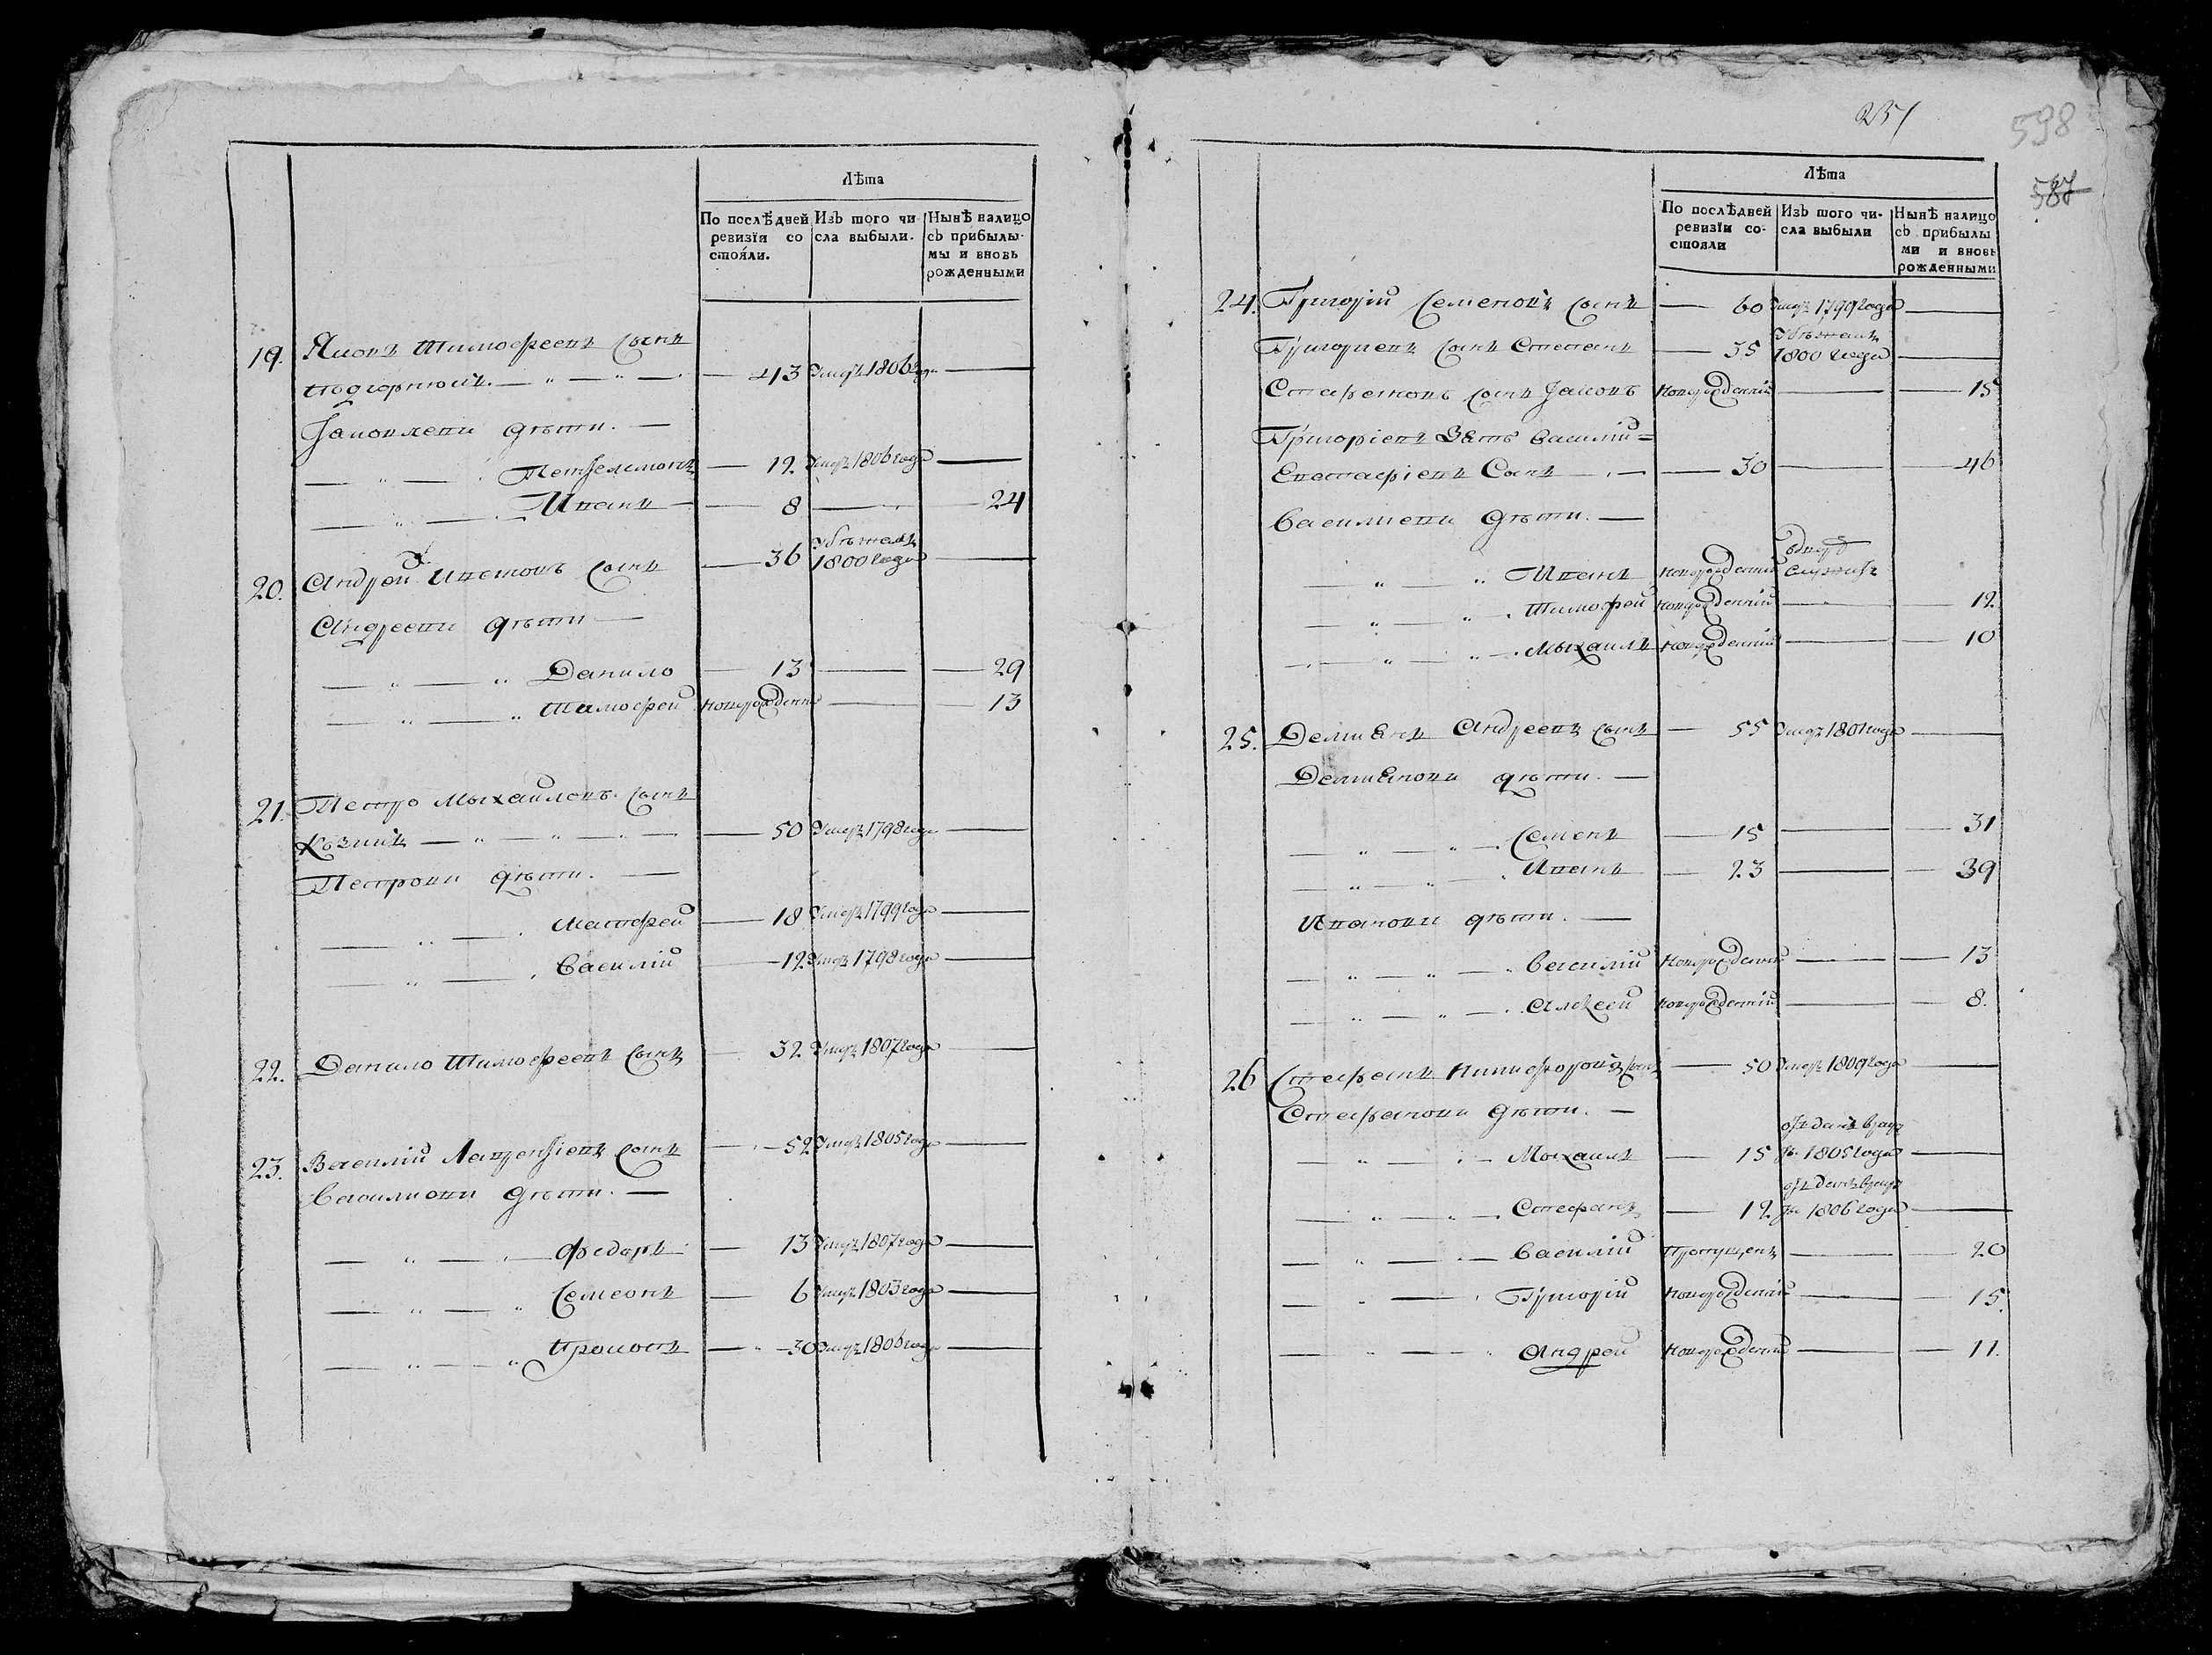 Лѣта
По послѣдней ревизїи состоя́ли.
Изъ того числа выбыли.
Нынѣ налицо съ прибылыми и вновь рожденными
19. Яковъ Тимофеевъ сынъ
Подгорный 43 умеръ 1806 года
Яковлевы дѣти.
Пантелемонъ 12 умеръ 1806 года
Иванъ 8 24
20. Андрей Ивановъ сынъ 36 Убѣжалъ 1800 года
Андреевы дѣти
Данило 13 29
Тимофей новорожденный 13
21. Петро Михайловъ сынъ
Козицъ 50 умеръ 1798 года
Петровы дѣти.
Матфей 18 умеръ 1799 года
Василій 12 умеръ 1798 года
22. Данило Тимофеевъ сынъ 32 умеръ 1807 года
23. Василій Лаврентіевъ сынъ 52 умеръ 1805 года
Васильовы дѣти.
Федоръ 13 умеръ 1807 года
Семеонъ 6 умеръ 1803 года
Прокопъ 30 умеръ 1806 года
231
598
587
Лѣта
По послѣдней ревизїи состояли
Изъ того числа выбыли
Нынѣ налицо съ прибылыми и вновь рожденными
24. Григорій Семеновъ сынъ 60 умеръ 1799 года
Григориевъ сынъ Степанъ 35 Убѣжалъ 1800 года
Стефановъ сынъ Яковъ новорожденній 15
Григоріевъ Зять Василій
Евстафіевъ Сынъ 30 46
Василиевы дѣти.
Иванъ новорожденній
Тимофей новорожденній 12
Михаилъ новорожденній 10
25. Демиянъ Андреевъ сынъ 55 умеръ 1801 года
Демияновы дѣти.
Семенъ 15 31
Иванъ 23 39
Ивановы дѣти.
Василій новорожденній 13
Алексей новорожденній 8.
26 Стефанъ Никифоровъ сынъ 50 умеръ 1809 года
Стефановы дѣти.
Михаилъ 15 отданъ в рекруты 1805 года
Стефанъ 12 отданъ в рекруты 1806 года
Василій пропущенъ 20
Григорій новорожденній 15.
Андрей новорожденній 11.